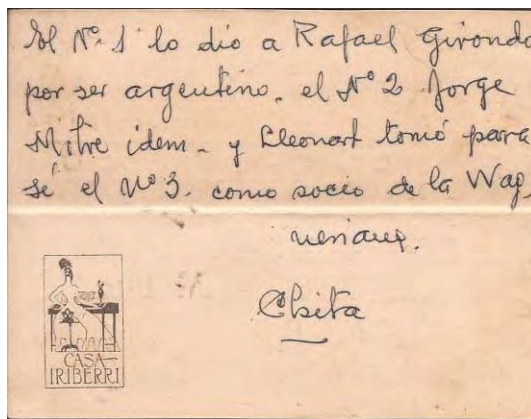 El Nº 1 lo dio a Rafael Girondo
por ser argentino. el Nº 2 Jorge
Mitre idem - y Lleonart tomó para
sé el Nº 3. como socio de la Wag,
neriana.
Chita
CASA
IRIBERRI